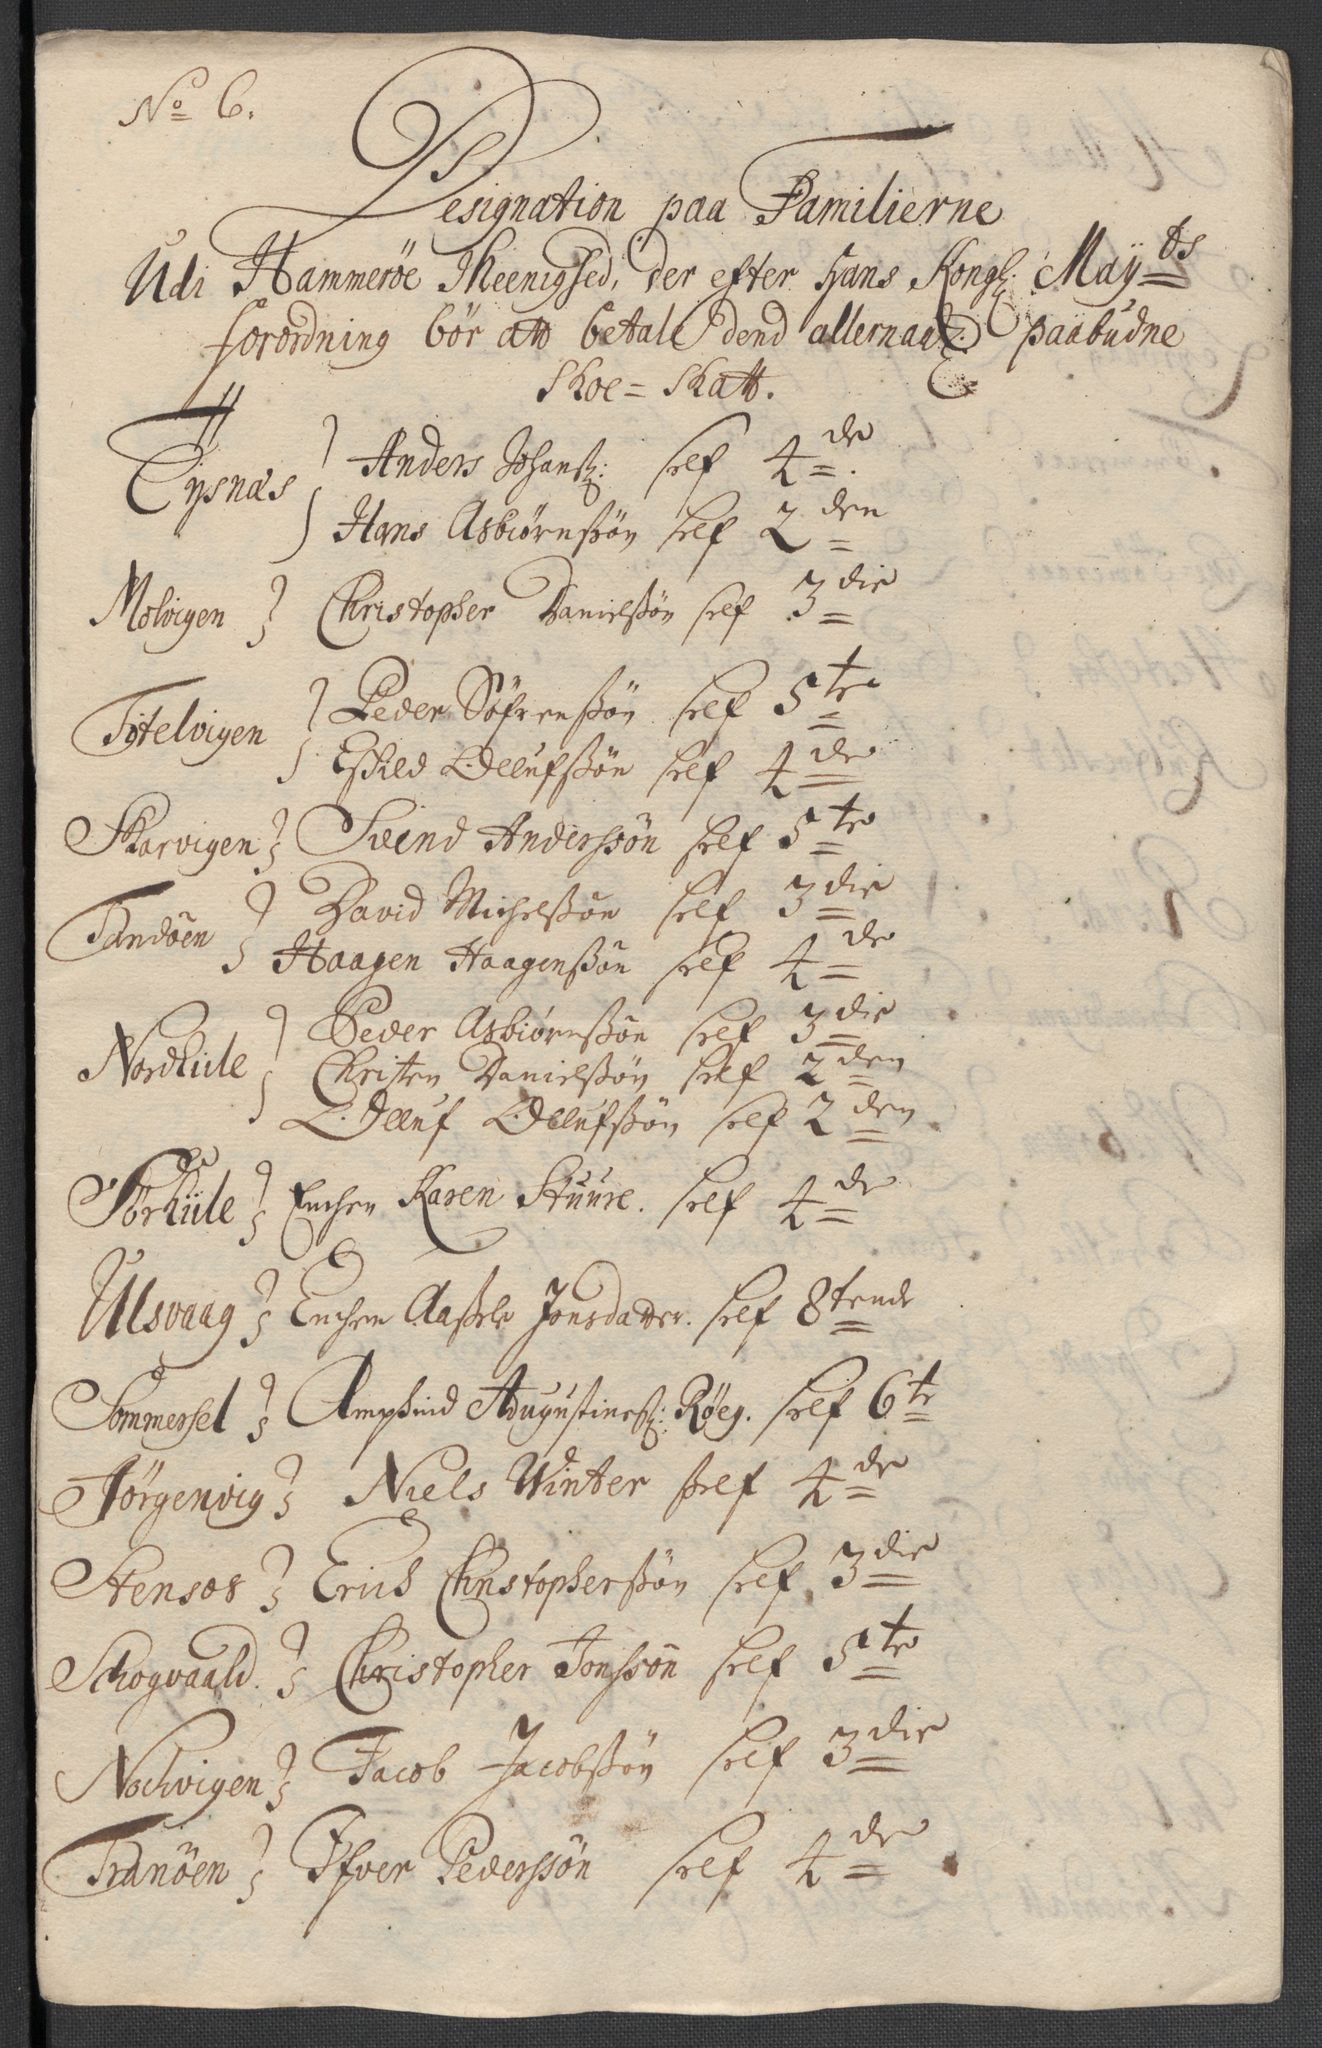 No 6.
Designation paa Familierne
Udi Hammerøe Meenighed, der efter Hans Kongl: Mayts
forordning bør att betale dend allernaad: paabudne
Skoe=Skatt.
Tysnæs } Anders Johansz: self 4de
Hans Asbiørnsßøn self 2den
Molvigen } Christopher Danielßøn self 3die
Titelvigen } Peder Söfrenßøn self 5te
Eskild Ollufsßøn self 4de
Skarvigen } Svend Anderssøn self 5te
Tandöen } David Michelßøn self 3die
Haagen Haagenßøn self 4de
Nordhüle } Peder Asbiørnßøn self 3die
Christen Danielßøn self 2den
Olluf Ollufsßøn self 2den
Sørhüle } Enchen Karen Stuure. self 4de
Ulsvaag } Enchen Aaßele Jonsdatter. self 8tende
Sommersel } Amßind Augustinesz: Røeg. self 6te
Jørgenvig } Niels Winter self 4de
Stensos } Erich Christopherßøn self 3die
Schogvaald. } Christopher Jonßøn self 5te
Nochvigen } Jacob Jacobßøn self 3die
Tranöen } Ifver Pederssøn self 4de